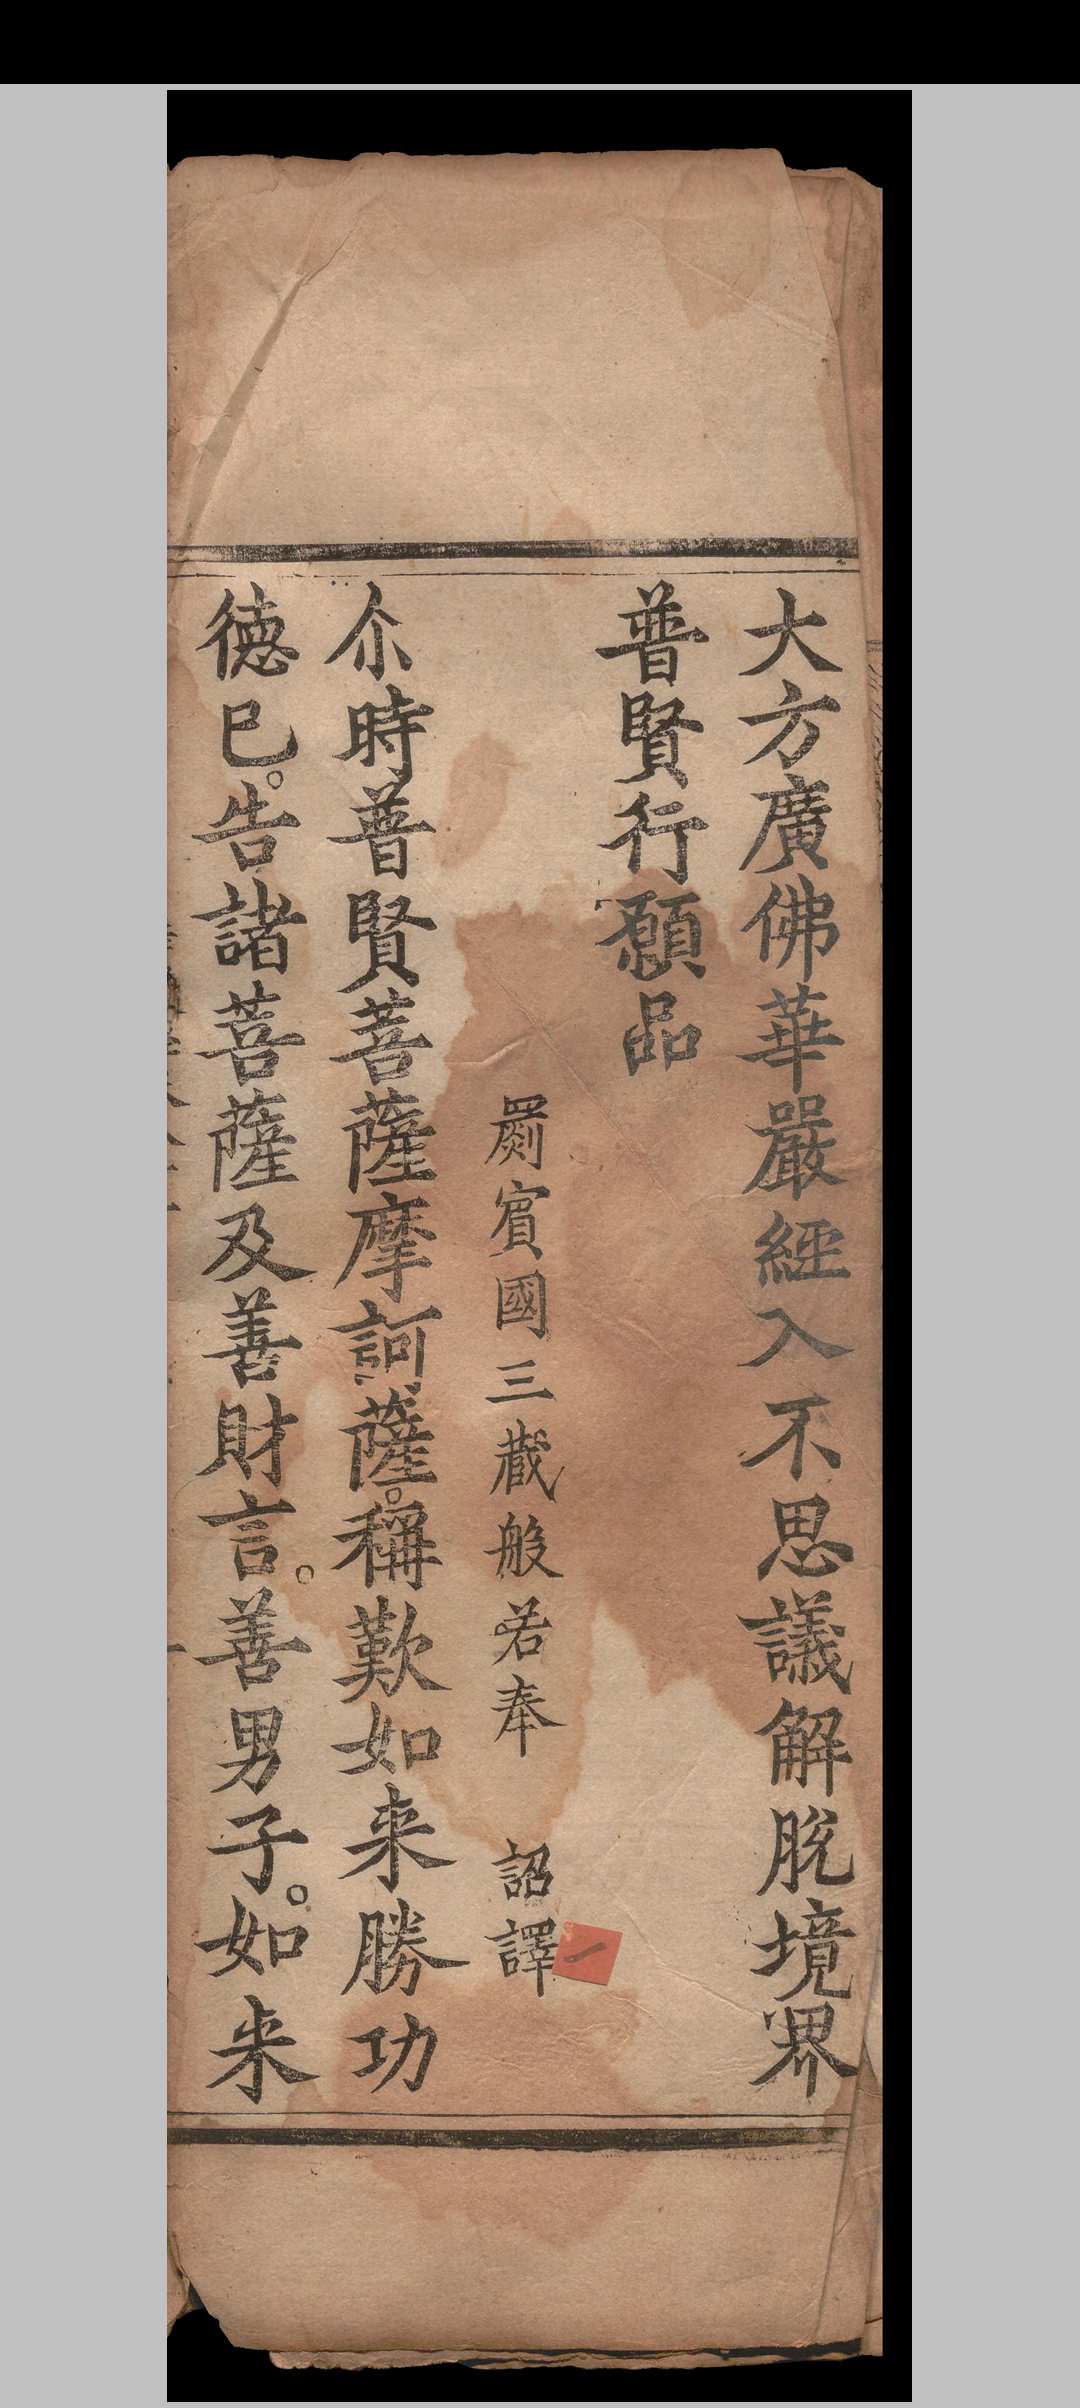 大方廣佛華嚴經入不思議解脫境界
普賢行願品
罽賓國三藏般若奉 詔譯
一
尒時普賢菩薩摩訶薩。稱歎如来勝功
徳已。告諸菩薩及善財言。善男子。如来